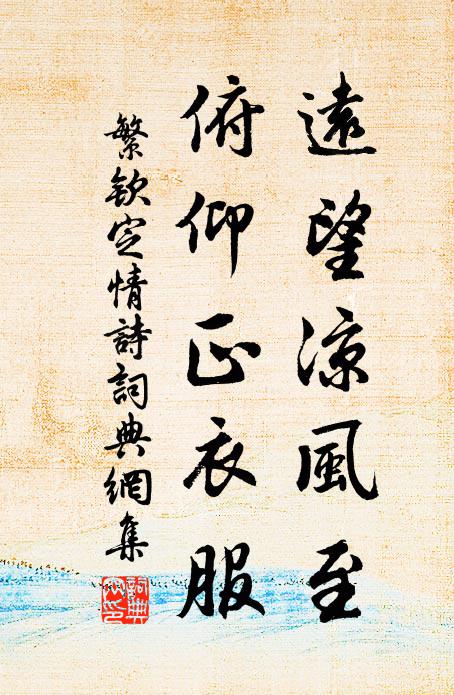 遠望涼風至
俯仰正衣服
繁欽定情詩詞典網集